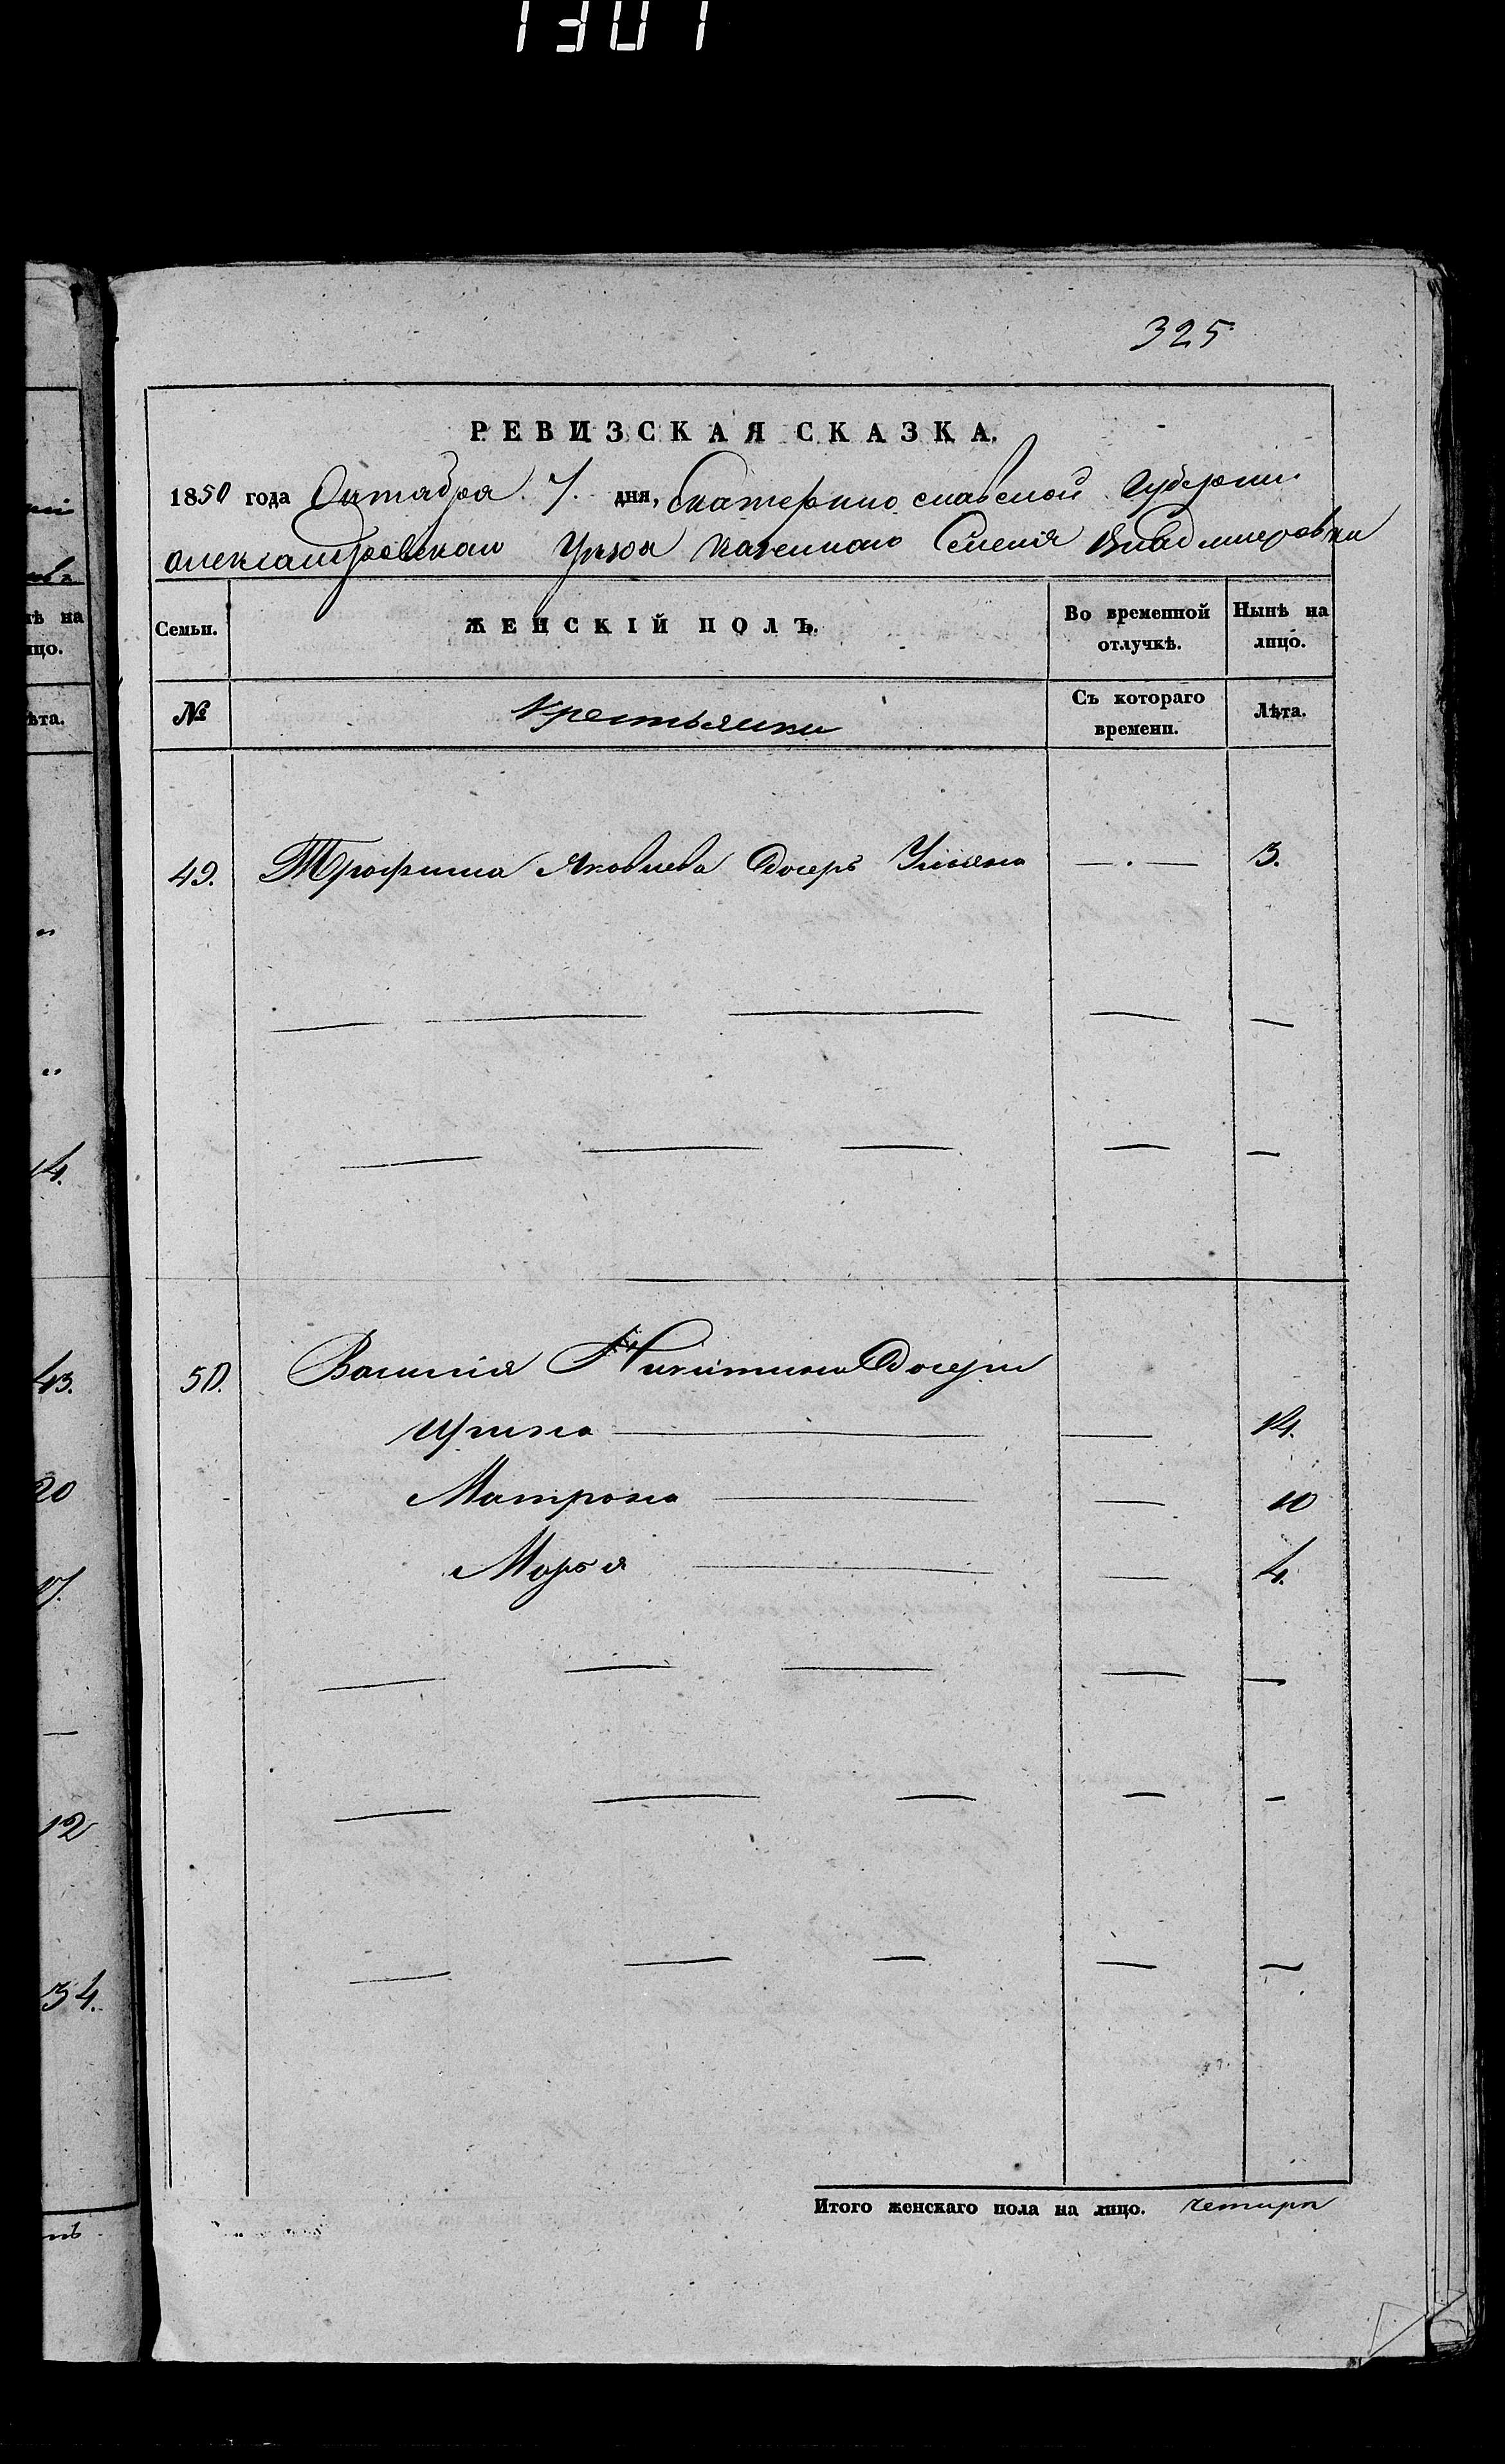 1301
325
РЕВИЗСКАЯ СКАЗКА.
1850 года Октября 7. дня, Екатеринославской Губернии
Александровскаго Уезда казеннаго Селенія Владимировки
Семьи. ЖЕНСКІЙ ПОЛЪ. Во временной отлучкѣ. Нынѣ на лицо.
№ Крестьянки Съ котораго времени. Лѣта.
49. Трофима Яковлева Дочерь Ульяна — . — 3.
50. Василія Никитина Дочери
Ирина — — 14.
Матрона — — 10
Марья — — 4.
Итого женскаго пола на лицо. четыри
нѣ на
ицо.
ѣта.
14.
43.
20
17.
12
34.